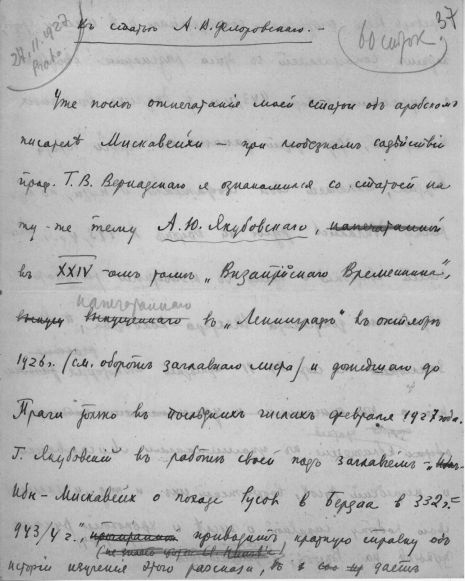 37
27.II.1927
Praha
Къ статьѣ А. В. Флоровскаго. -
60 строк
Уже послѣ отпечатанія моей статьи объ арабскомъ
писателѣ Мискавейхи – при любезномъ содѣйствіи
проф. Г. В. Вернадскаго я ознакомился со статьей на
ту-же тему А. Ю. Якубовскаго, напечатанной
въ XXIV-омъ томѣ „Византійскаго Временника",
напечатаннаго
выпущеннаго въ „Ленинградѣ" въ октябрѣ
1926 г. (см. оборотъ заглавнаго листа) и дошедшаго до
Праги только въ послѣднихъ числахъ февраля 1927 года.
Г. Якубовскій въ работѣ своей подъ заглавіемъ – „
Ибн-Мискавейх о походе Русов в Бердаа в 332 г. =
943/4 г." приводитъ краткую справку объ
исторіи изученія этого разсказа, даетъ